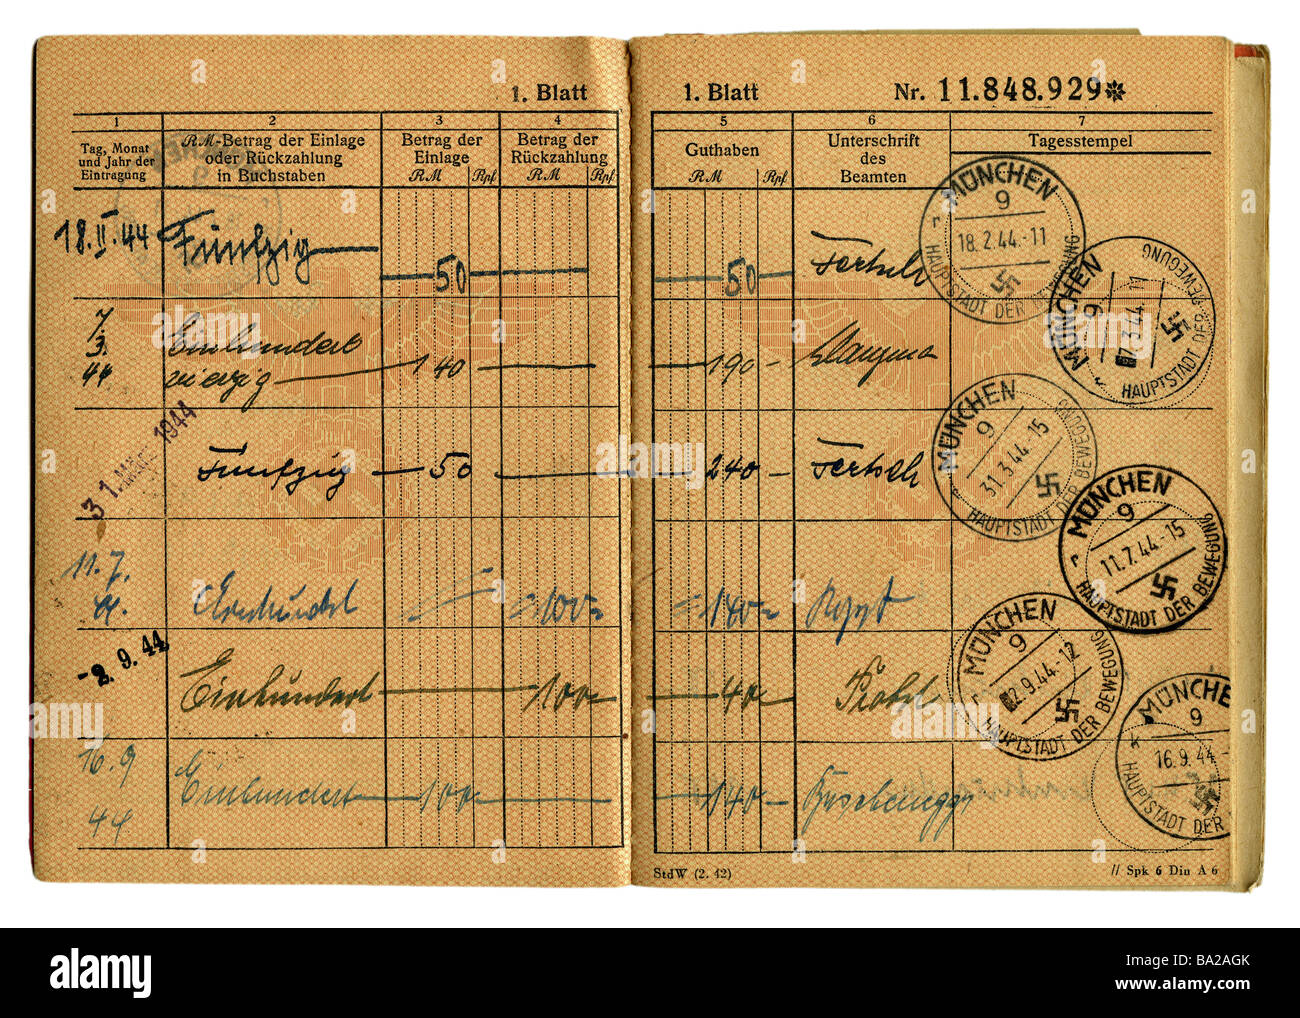 1. Blatt
1. Blatt Nr. 11.848.929
1 2 3 4 5 6 7
Tag, Monat
und Jahr der
Eintragung
RM-Betrag der Einlage
oder Rückzahlung
in Buchstaben
Betrag der
Einlage
RM Rpf
Betrag der
Rückzahlung
RM Rpf
Guthaben
RM Rpf
Unterschrift
des
Beamten
Tagesstempel
18.II.44 Fünfzig 50 50
MÜNCHEN
9
18.2.44.-11
HAUPTSTADT DER BEWEGUNG
7.
3.
44
Einhundert
vierzig 140 190
MÜNCHEN
9
7.3.44
HAUPTSTADT DER BEWEGUNG
31. März 1944
Fünfzig 50 240
MÜNCHEN
9
31.3.44.-15
HAUPTSTADT DER BEWEGUNG
11.7.
44.
Einhundert 100 140
MÜNCHEN
9
11.7.44.-15
HAUPTSTADT DER BEWEGUNG
-2.9.44
Einhundert 100 40
MÜNCHEN
9
2.9.44.-12
HAUPTSTADT DER BEWEGUNG
16.9
44
Einhundert 100 140
MÜNCHE
9
16.9.44
HAUPTSTADT DER
StdW (2. 42)
// Spk 6 Din A 6
alamy
alamy
Image ID: BA2AGK
www.alamy.com